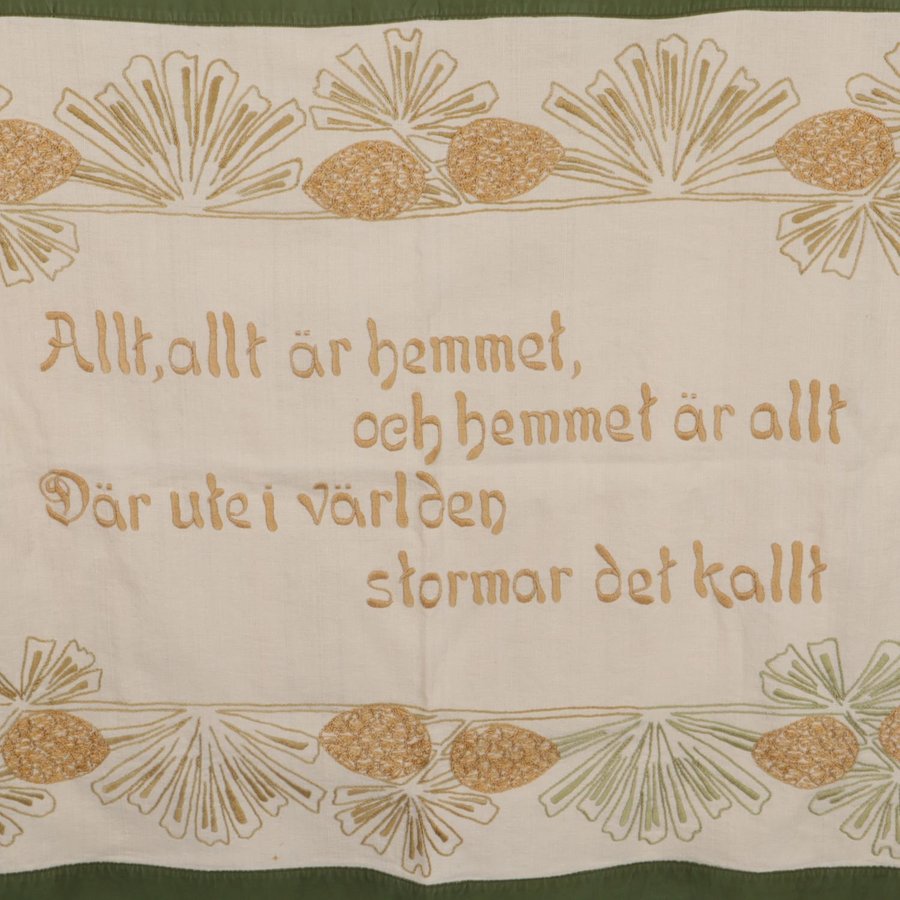 Allt, allt är hemmet,
och hemmet är allt
Där ute i världen
stormar det kallt